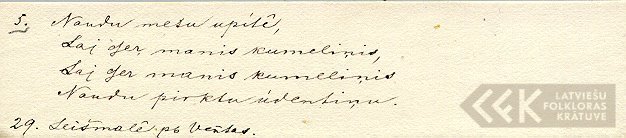 5. Naudu metu upītē,
Laj dzeŗ manis kumeliņis,
Laj dzeŗ manis kumeliņis
Naudu pirktu ūdentiņu.
29. Leišmalē pb Ventas.
LATVIEŠU
FOLKLORAS
KRĀTUVE